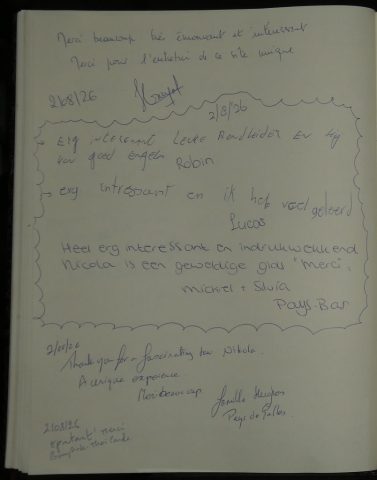 Merci beaucoup très émouvant et intéressant
Merci pour l'entretien de ce site unique
2/08/26
2/8/'26
→ Erg interesant Leuke Rondleider En hij
kan goed engels
Robin
→ erg intressant en ik heb veel geleerd
Lucas
Heel erg interessant en indrukwekkend
Nicola is een geweldige gids "merci".
Michiel + Silvia
Pays-Bas
2/08/26
Thank you for a fascinating tour Nikola.
A unique experience.
Merci beaucoup
Famille Hughes
Pays de Galles
2/08/26
merci